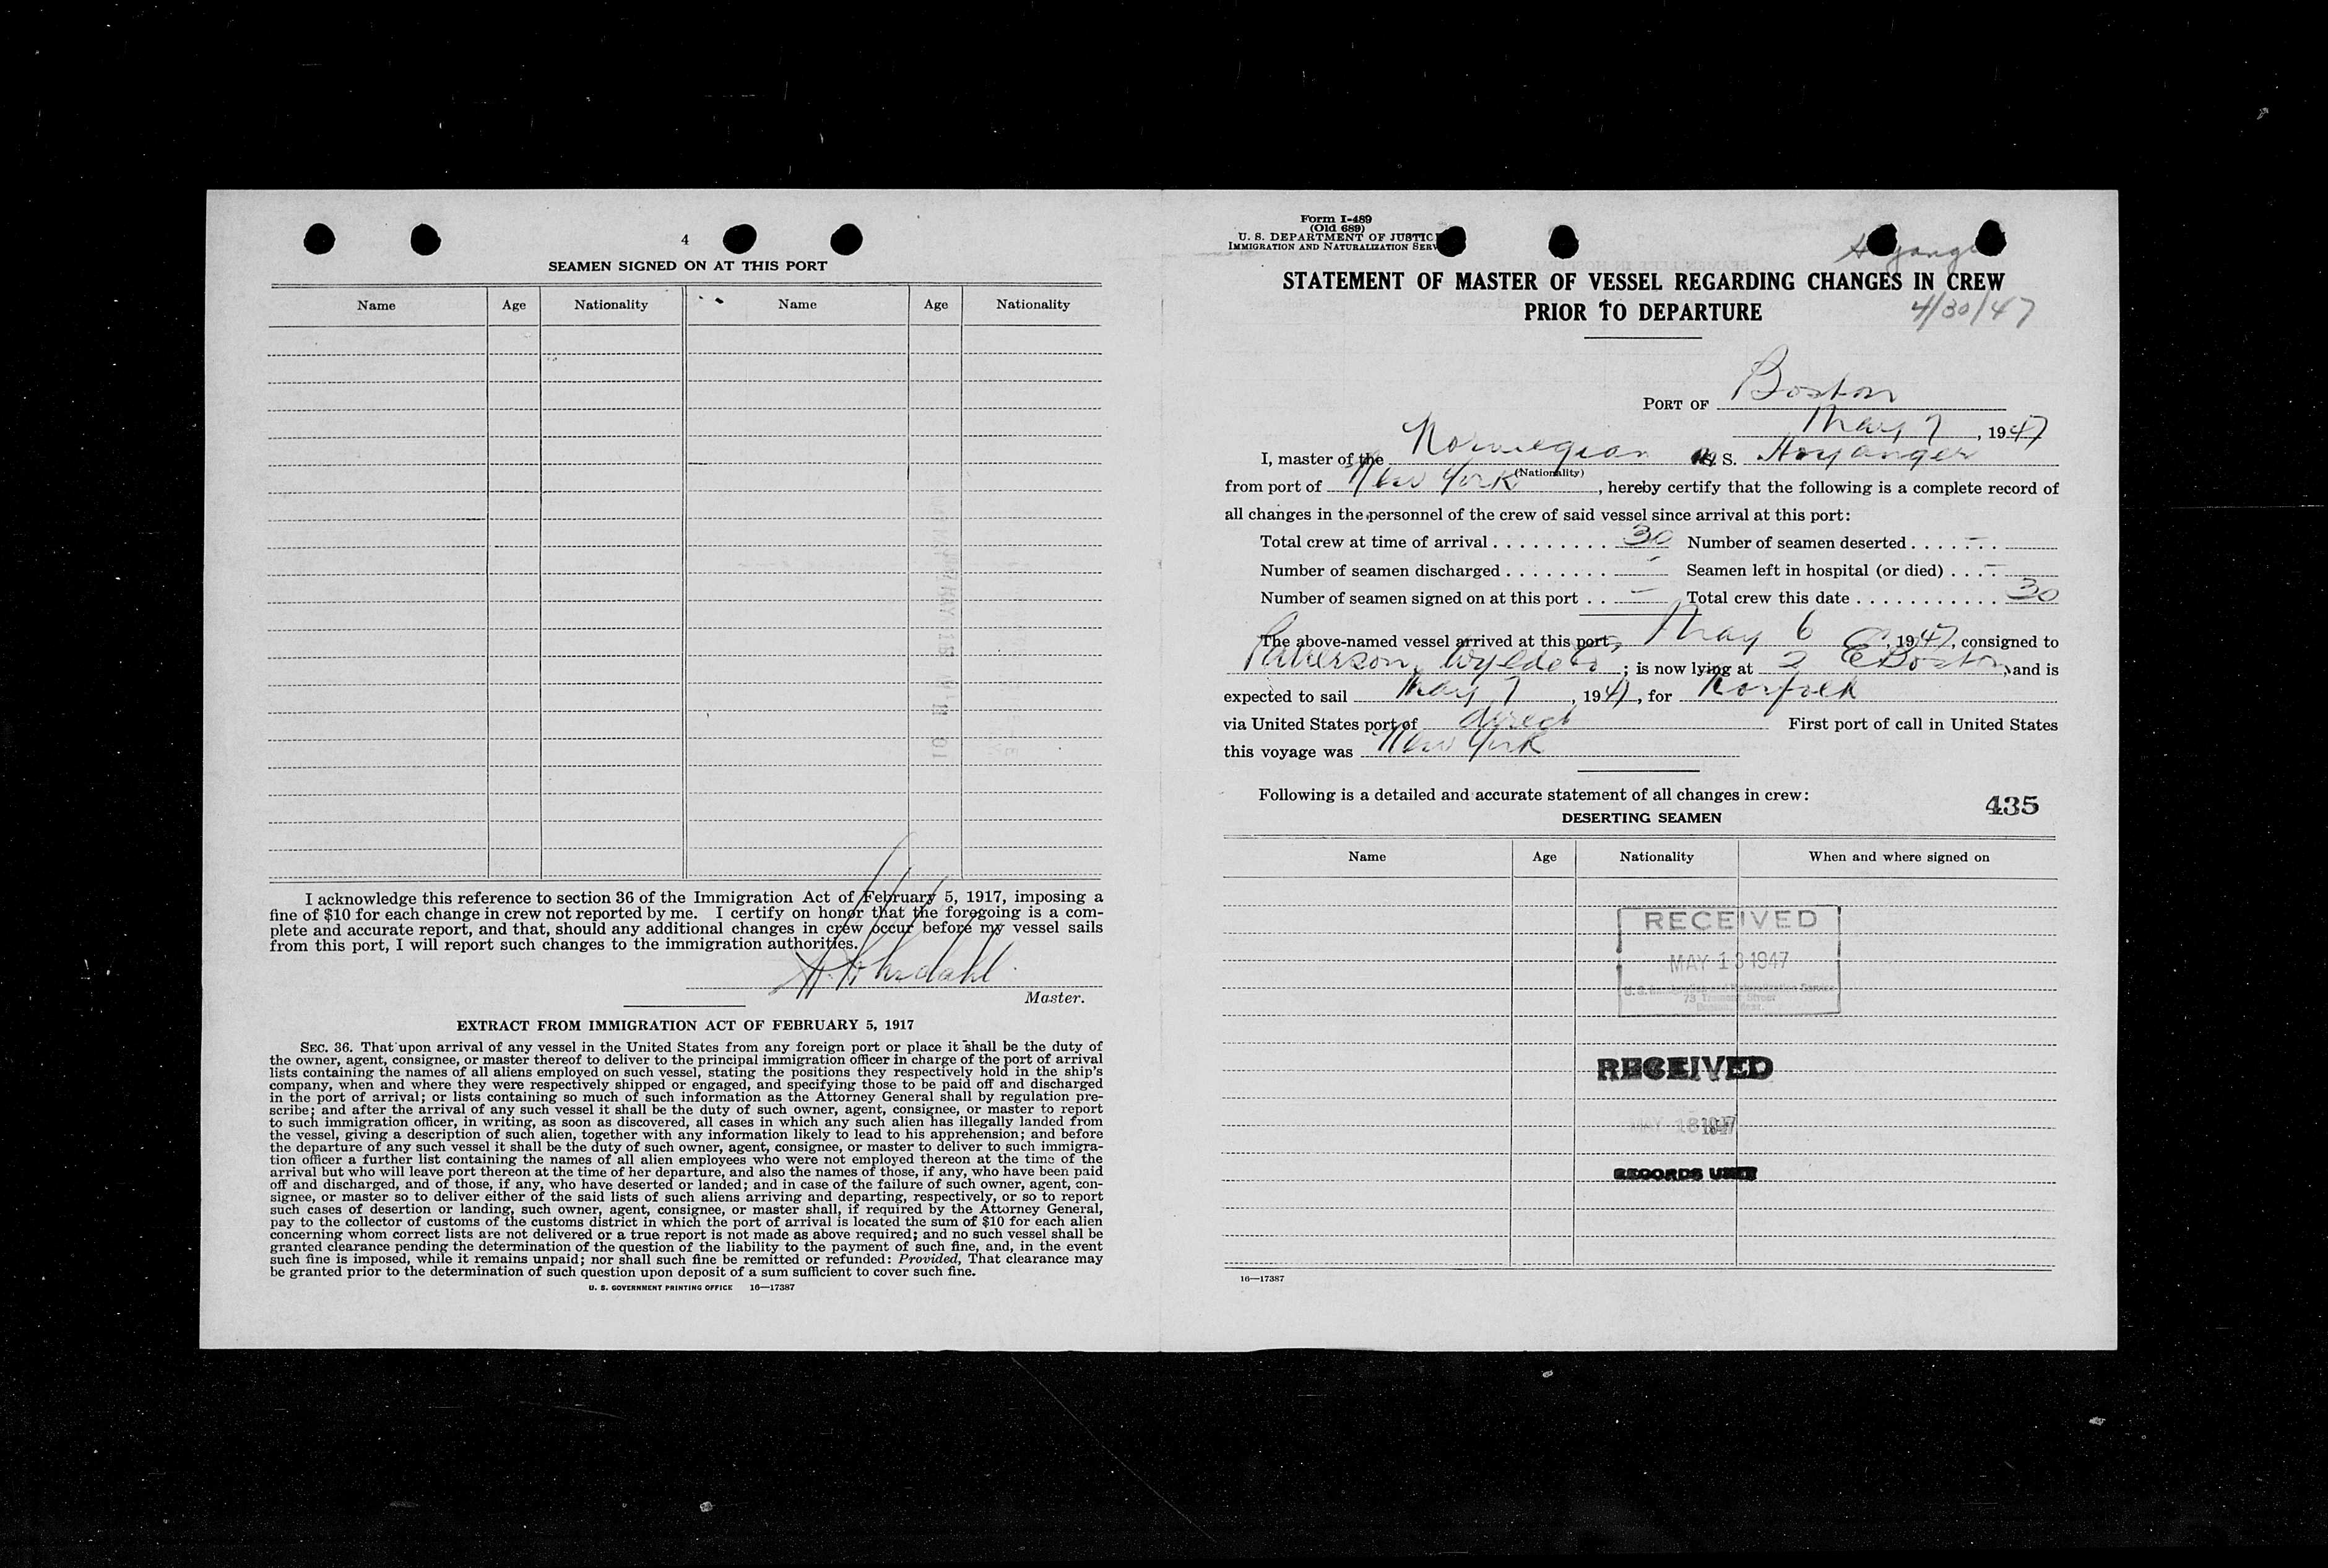 4
SEAMEN SIGNED ON AT THIS PORT
Name Age Nationality Name Age Nationality
I acknowledge this reference to section 36 of the Immigration Act of February 5, 1917, imposing a
fine of $10 for each change in crew not reported by me. I certify on honor that the foregoing is a com-
plete and accurate report, and that, should any additional changes in crew occur before my vessel sails
from this port, I will report such changes to the immigration authorities.
Master.
EXTRACT FROM IMMIGRATION ACT OF FEBRUARY 5, 1917
SEC. 36. That upon arrival of any vessel in the United States from any foreign port or place it shall be the duty of
the owner, agent, consignee, or master thereof to deliver to the principal immigration officer in charge of the port of arrival
lists containing the names of all aliens employed on such vessel, stating the positions they respectively hold in the ship's
company, when and where they were respectively shipped or engaged, and specifying those to be paid off and discharged
in the port of arrival; or lists containing so much of such information as the Attorney General shall by regulation pre-
scribe; and after the arrival of any such vessel it shall be the duty of such owner, agent, consignee, or master to report
to such immigration officer, in writing, as soon as discovered, all cases in which any such alien has illegally landed from
the vessel, giving a description of such alien, together with any information likely to lead to his apprehension; and before
the departure of any such vessel it shall be the duty of such owner, agent, consignee, or master to deliver to such immigra-
tion officer a further list containing the names of all alien employees who were not employed thereon at the time of the
arrival but who will leave port thereon at the time of her departure, and also the names of those, if any, who have been paid
off and discharged, and of those, if any, who have deserted or landed; and in case of the failure of such owner, agent, con-
signee, or master so to deliver either of the said lists of such aliens arriving and departing, respectively, or so to report
such cases of desertion or landing, such owner, agent, consignee, or master shall, if required by the Attorney General,
pay to the collector of customs of the customs district in which the port of arrival is located the sum of $10 for each alien
concerning whom correct lists are not delivered or a true report is not made as above required; and no such vessel shall be
granted clearance pending the determination of the question of the liability to the payment of such fine, and, in the event
such fine is imposed, while it remains unpaid; nor shall such fine be remitted or refunded: Provided, That clearance may
be granted prior to the determination of such question upon deposit of a sum sufficient to cover such fine.
U. S. GOVERNMENT PRINTING OFFICE 16—17387
Form I-489
(Old 689)
U. S. DEPARTMENT OF JUSTIC
IMMIGRATION AND NATURALIZATION SERV
STATEMENT OF MASTER OF VESSEL REGARDING CHANGES IN CREW
PRIOR TO DEPARTURE
4/30/47
PORT OF Boston
May 7, 1947
I, master of the Norwegian M. S. Hoyanger
(Nationality)
from port of New York, hereby certify that the following is a complete record of
all changes in the personnel of the crew of said vessel since arrival at this port:
Total crew at time of arrival . . . . . . . . . 30 Number of seamen deserted . . . . . . . -
Number of seamen discharged . . . . . . . . - Seamen left in hospital (or died) . . . . -
Number of seamen signed on at this port . . - Total crew this date . . . . . . . . . . . . 30
The above-named vessel arrived at this port, May 6, 1947, consigned to
Patterson, Wylde Co; is now lying at 2 E Boston, and is
expected to sail May 7, 1947, for Norfolk
via United States port of direct First port of call in United States
this voyage was New York
Following is a detailed and accurate statement of all changes in crew:
435
DESERTING SEAMEN
Name Age Nationality When and where signed on
RECEIVED
MAY 13 1947
U. S. Immigration and Naturalization Service
73 Tremont Street
Boston, Mass.
RECEIVED
RECORDS UNIT
16—17387